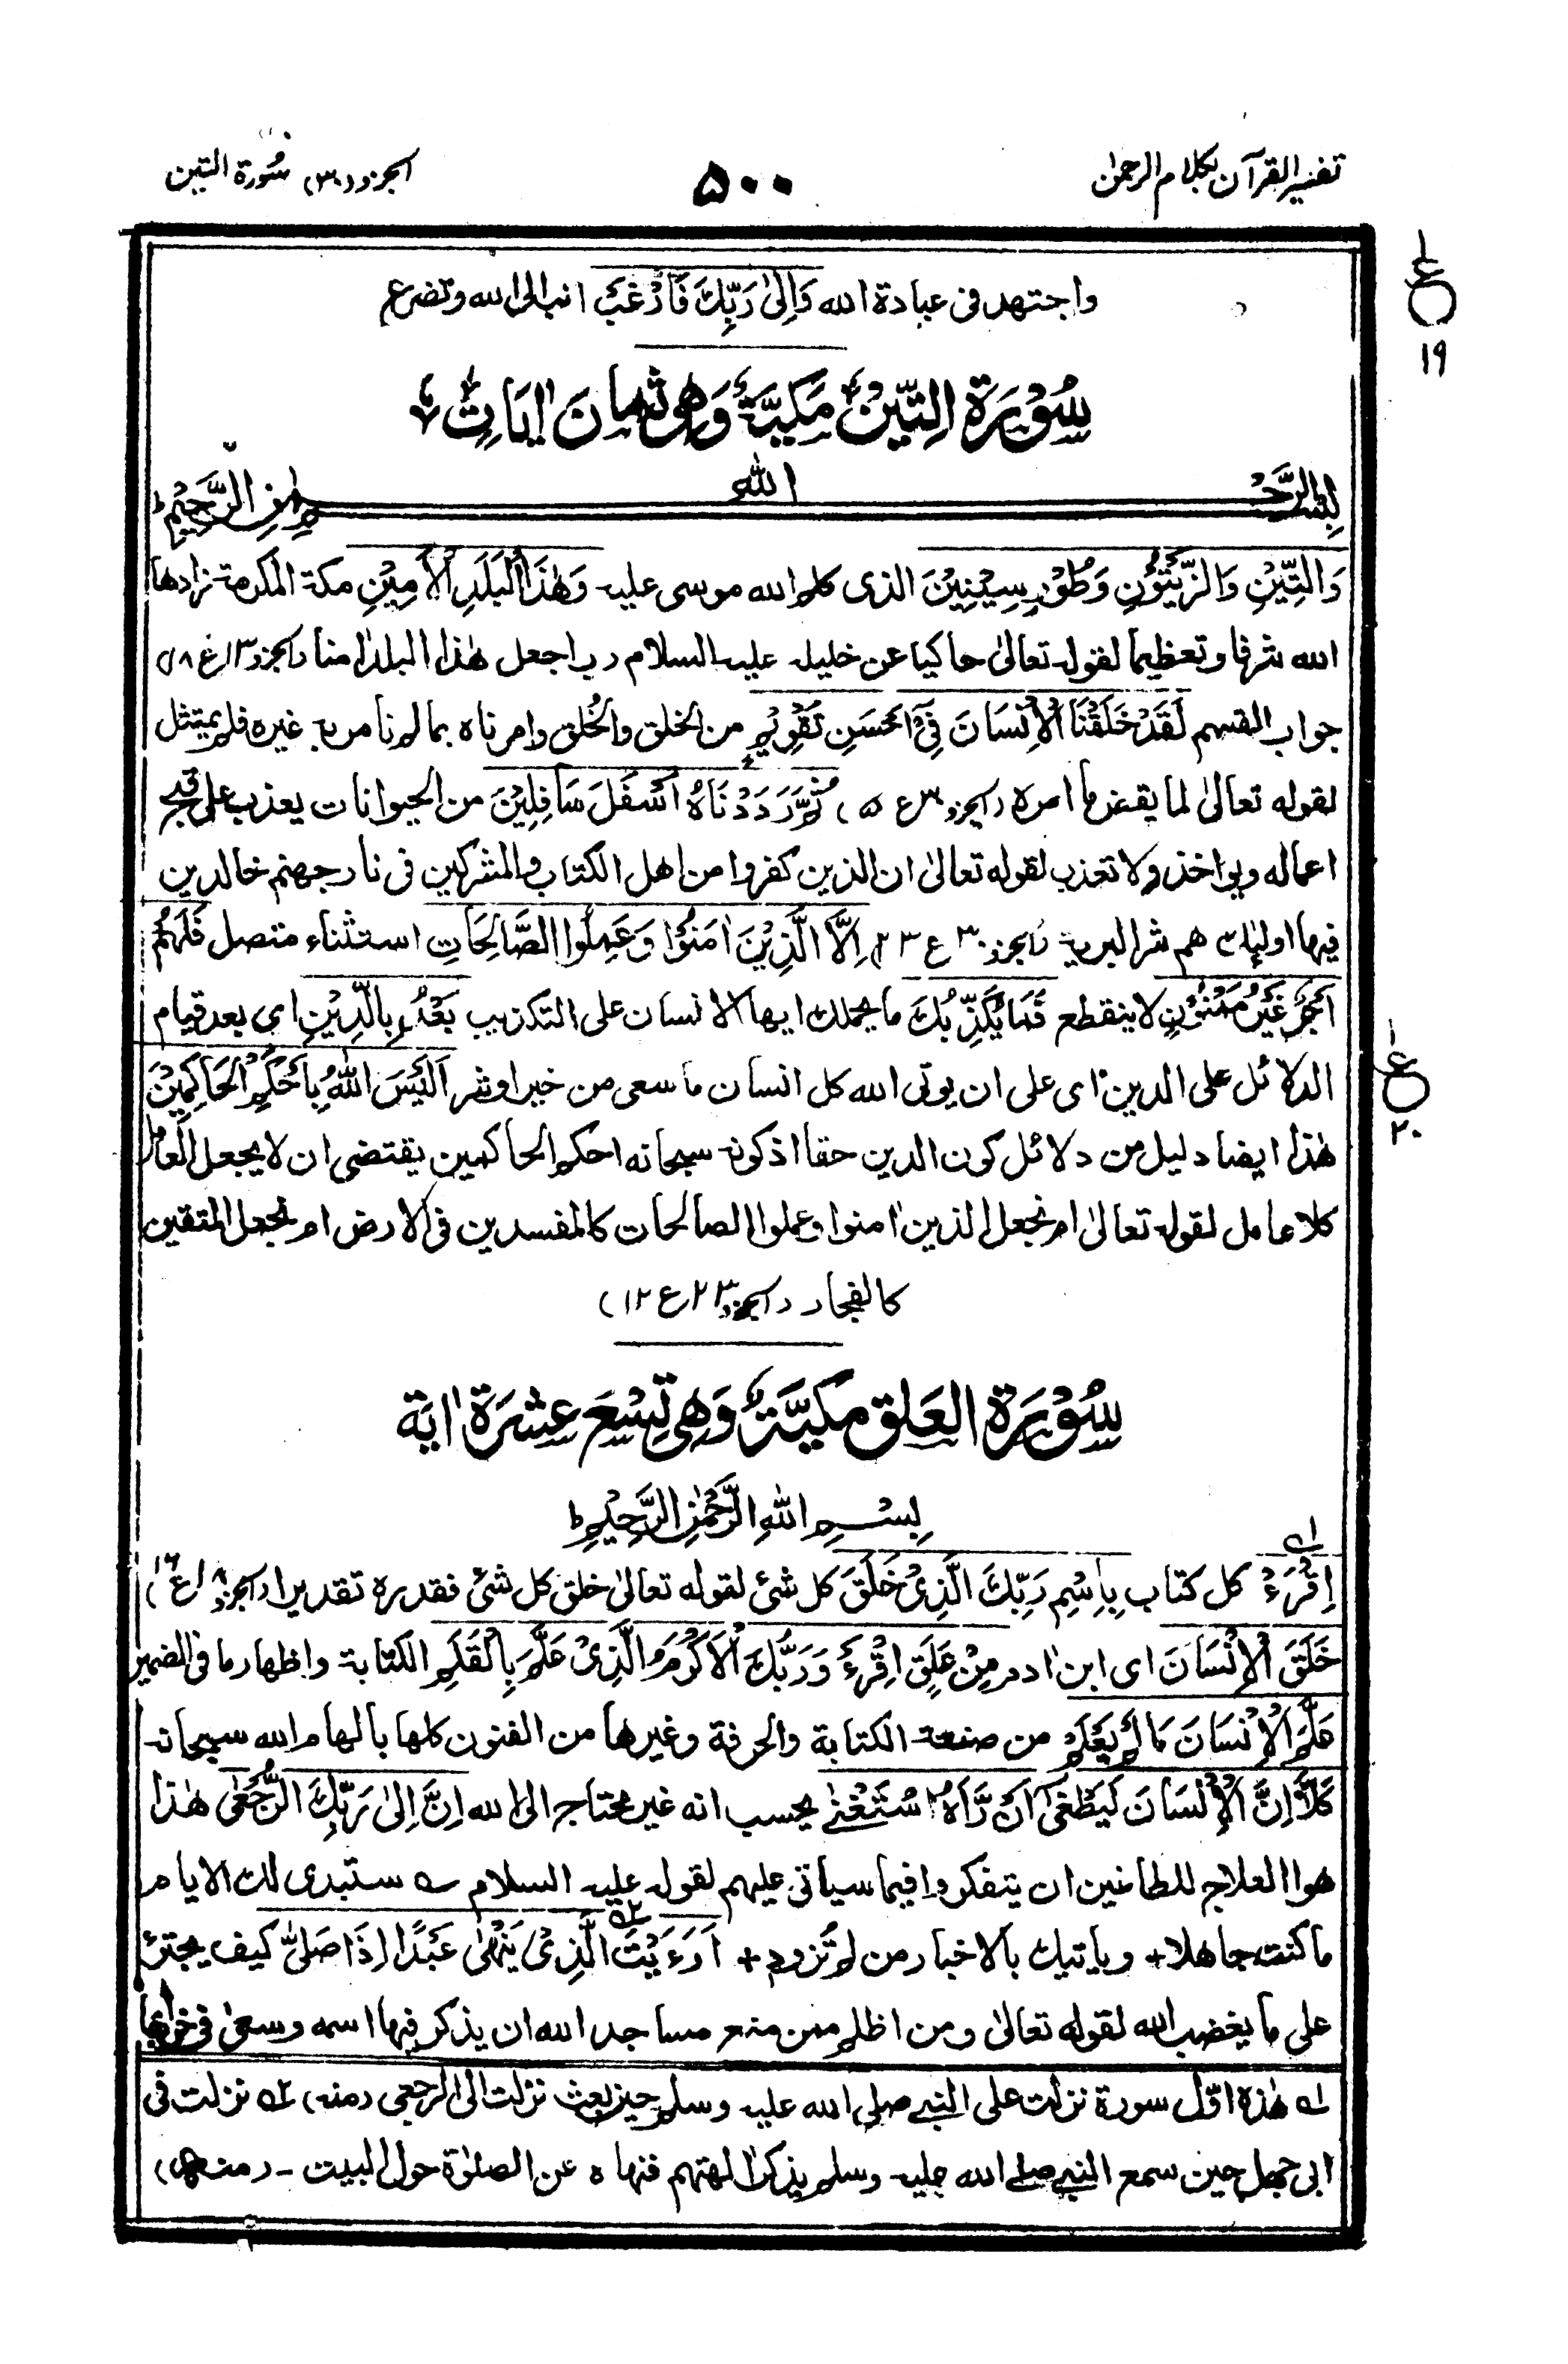 تفسير القرآن بكلام الرحمٰن ۵۰۰ الجزو (۳۰) سُورة التين
واجتهد فى عبادة الله وَاِلىٰ رَبِّكَ فَارْغَبْ انب الى الله وتضرع
ع ۱۹
سُوْرَةُ التِّيْنِ مَكِيَّةٌ وَهِىَ ثَمَانَ اٰيَاتٍ
بِسْمِ اللهِ الرَّحْمٰنِ الرَّحِيْمِ ط
وَالتِّيْنِ وَالزَّيْتُوْنِ وَطُوْرِ سِيْنِيْنَ الذى كلم الله موسى عليه وَهٰذَا الْبَلَدِ الْاَمِيْنِ مكة المكرمة زادها
الله شرفا وتعظيما لقوله تعالىٰ حاكيا عن خليله عليه السلام رب اجعل هٰذا البلد اٰمنا (الجزو ۱۳ ع ۱۸)
جواب القسم لَقَدْ خَلَقْنَا الْاِنْسَانَ فِىْٓ اَحْسَنِ تَقْوِيْمٍ من الخلق والخُلق وامرناه بما لم نامر به غيره فلم يمتثل
لقوله تعالىٰ لما يقض ما امره (الجزو ۳۰ ع ۵) ثُمَّ رَدَدْنَاهُ اَسْفَلَ سَافِلِيْنَ من الحيوانات يعذب على قبح
اعماله ويواخذ ولا تعذب لقوله تعالىٰ ان الذين كفروا من اهل الكتاب والمشركين فى نار جهنم خالدين
فيها اولٰئك هم شر البرية (الجزو ۳۰ ع ۲۳) اِلَّا الَّذِيْنَ اٰمَنُوْا وَعَمِلُوا الصَّالِحَاتِ استثناء متصل فَلَهُمْ
اَجْرٌ غَيْرُ مَمْنُوْنٍ لا ينقطع فَمَا يُكَذِّبُكَ ما يحملك ايها الانسان على التكذيب بَعْدُ بِالدِّيْنِ اى بعد قيام
الدلائل على الدين اى على ان يوتى الله كل انسان ما سعى من خير او شر اَلَيْسَ اللهُ بِاَحْكَمِ الْحَاكِمِيْنَ
ع ۲۰
هٰذا ايضا دليل من دلائل كون الدين حقا اذ كونه سبحانه احكم الحاكمين يقتضى ان لا يجعل العامل
كلا عامل لقوله تعالىٰ ام نجعل الذين اٰمنوا وعملوا الصالحات كالمفسدين فى الارض ام نجعل المتقين
كالفجار (الجزو ۲۳ ع ۱۲)
سُوْرَةُ العَلَق مَكِيَّةٌ وَهِىَ تِسْعَ عِشْرَةَ اٰيَة
بِسْمِ اللهِ الرَّحْمٰنِ الرَّحِيْمِ ط
اِقْرَءْ ؎۱ كل كتاب بِاِسْمِ رَبِّكَ الَّذِىْ خَلَقَ كل شئ لقوله تعالىٰ خلق كل شئ فقدره تقديرا (الجزو ۱۸ ع ۱۶)
خَلَقَ الْاِنْسَانَ اى ابن اٰدم مِنْ عَلَقٍ اِقْرَءْ وَرَبُّكَ الْاَكْرَمُ الَّذِىْ عَلَّمَ بِالْقَلَمِ الكتابة واظهار ما فى الضمير
عَلَّمَ الْاِنْسَانَ مَا لَمْ يَعْلَمْ من صنعة الكتابة والحرفة وغيرها من الفنون كلها بالهام الله سبحانه
كَلَّآ اِنَّ الْاِنْسَانَ لَيَطْغىٰ اَنْ رَّاٰهُ اسْتَغْنىٰ يحسب انه غير محتاج الى الله اِنَّ اِلىٰ رَبِّكَ الرُّجْعىٰ هٰذا
هو العلاج للطاغين ان يتفكروا فيما سياتى عليهم لقوله عليه السلام ؎ ستبدى لك الايام
ما كنت جاهلا + وياتيك بالاخبار من لم تُزود + اَرَءَيْتَ ؎۲ الَّذِىْ يَنْهىٰ عَبْدًا اِذَا صَلىّٰ كيف يجترئ
على ما يغضب الله لقوله تعالىٰ ومن اظلم ممن منع مساجد الله ان يذكر فيها اسمه وسعىٰ فى خرابها
؎۱ هٰذه اوّل سورة نزلت على النبى صلى الله عليه وسلم حين بعث نزلت الى الرجعى (منه) ؎۲ نزلت فى
ابى جهل حين سمع النبى صلى الله عليه وسلم يذكر اٰلهتهم فنهاه عن الصلوٰة حول البيت - (منه)